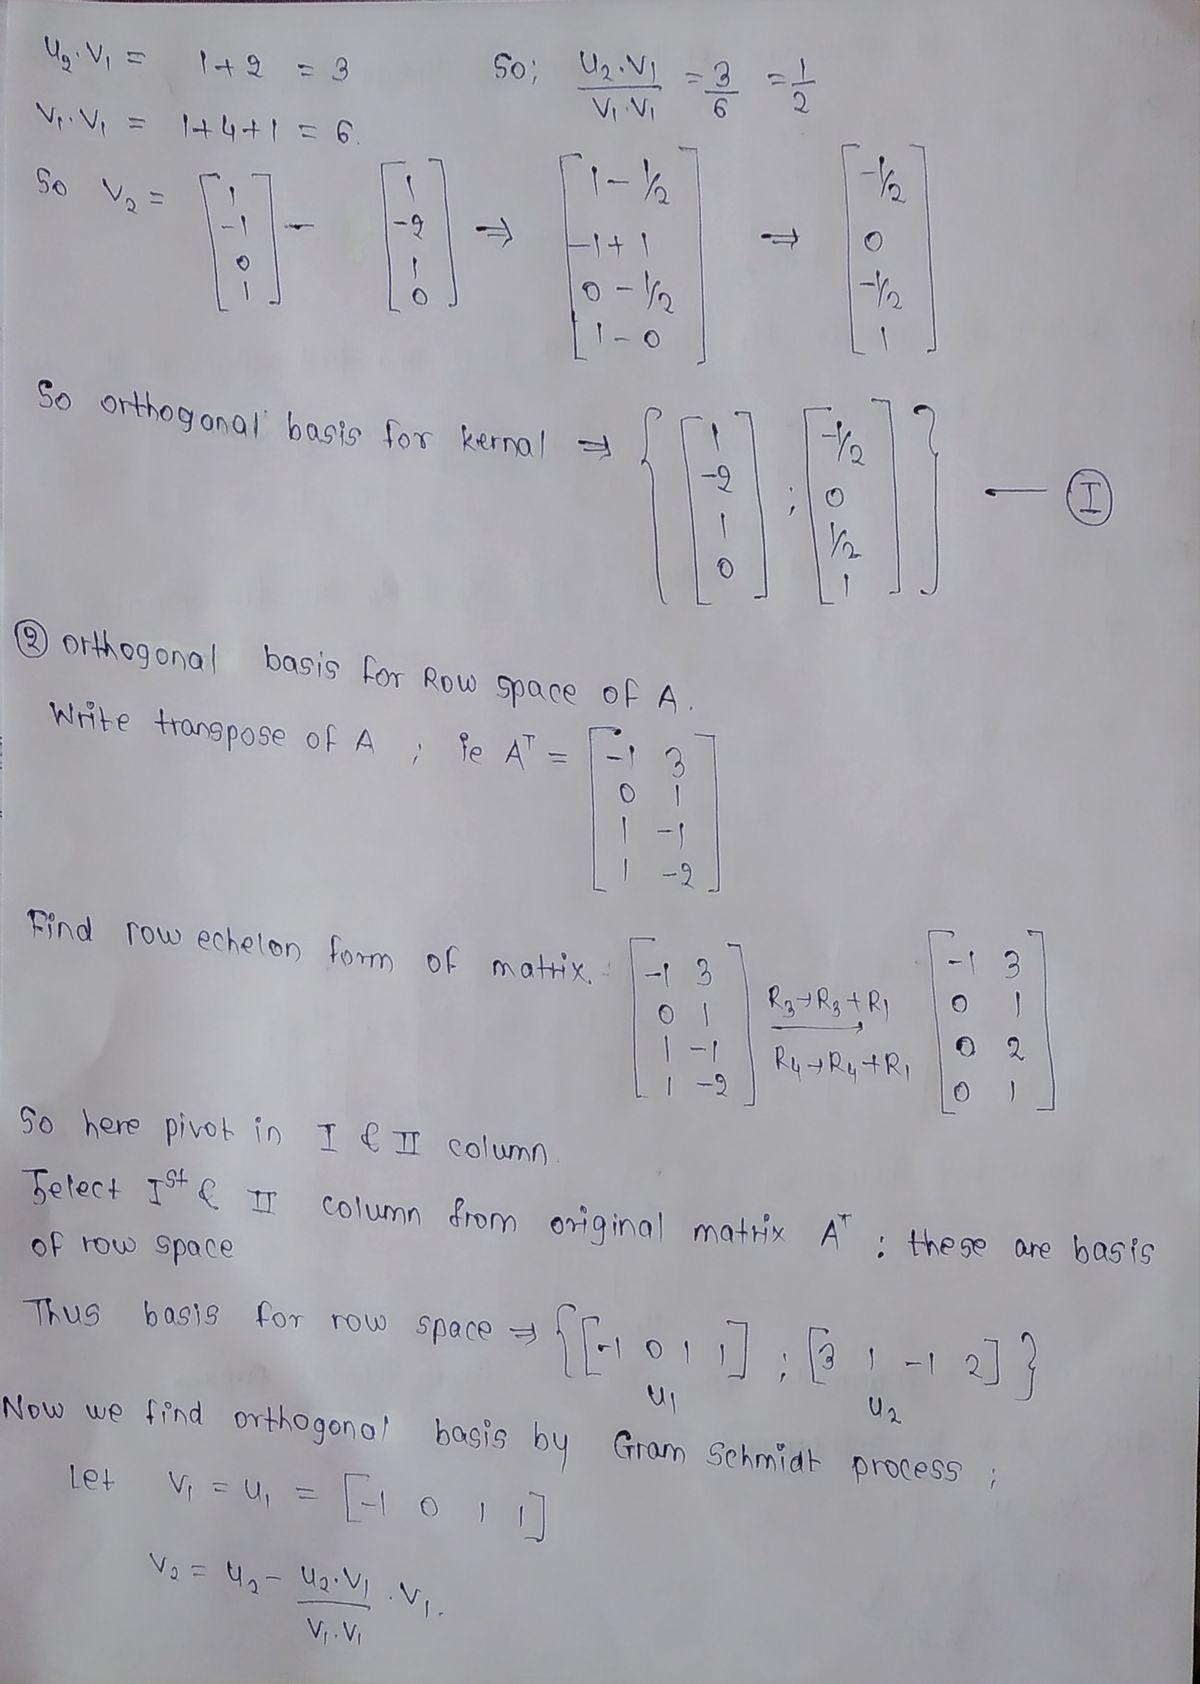 u₂·v₁ = 1+2 = 3 So; u₂·v₁/v₁·v₁ = 3/6 = 1/2
v₁·v₁ = 1+4+1 = 6.
So v₂ = [1 -1 0 1] - [1 -2 1 0] ⇒ [1-1/2 -1+1 0-1/2 1-0] ⇒ [-1/2 0 -1/2 1]
So orthogonal basis for kernal ⇒ {[1 -2 1 0] ; [-1/2 0 1/2 1]} — Ⓘ
② orthogonal basis for Row space of A.
Write transpose of A ; ie Aᵀ = [-1 3
0 1
1 -1
1 -2]
Find row echelon form of matrix. [-1 3
0 1
1 -1
1 -2] R₃→R₃+R₁
R₄→R₄+R₁ [-1 3
0 1
0 2
0 1]
So here pivot in I & II column.
Select Iˢᵗ & II column from original matrix Aᵀ : these are basis
of row space
Thus basis for row space ⇒ {[-1 0 1 1] ; [3 1 -1 2]}
u₁ u₂
Now we find orthogonal basis by Gram Schmidt process ;
Let v₁ = u₁ = [-1 0 1 1]
v₂ = u₂ - u₂·v₁/v₁·v₁ · v₁.